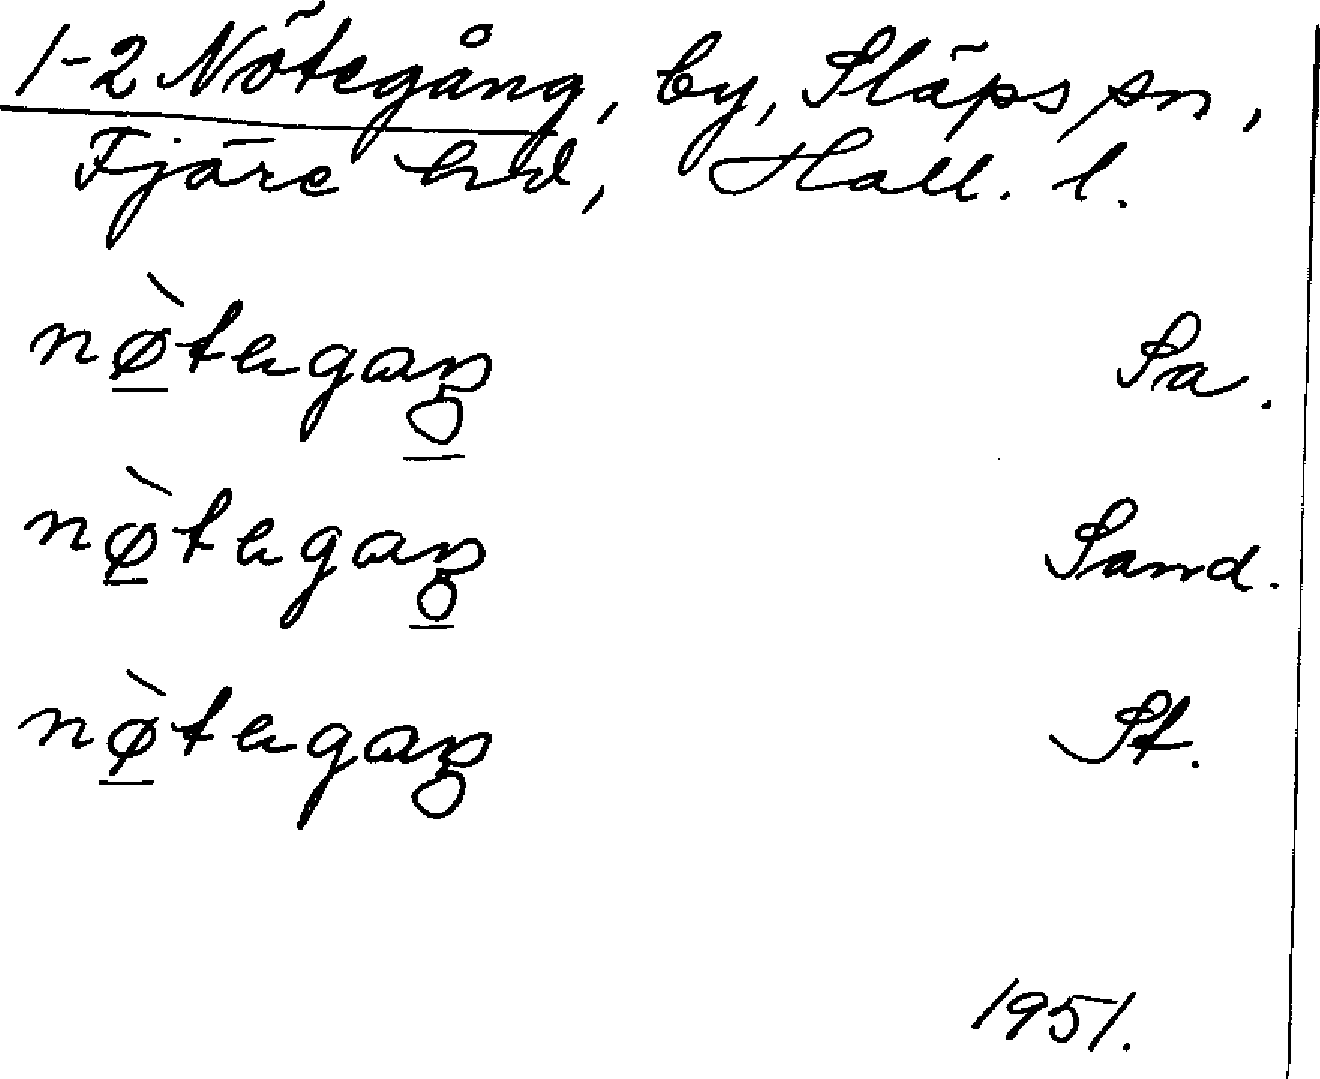 1-2 Nötegång, by, Släps sn,
Fjäre hd, Hall. l.
nø̱̀tegaŋ̱ Sa.
nø̱̀tegaŋ̱ Sand.
nø̱̀tegaŋ St.
1951.